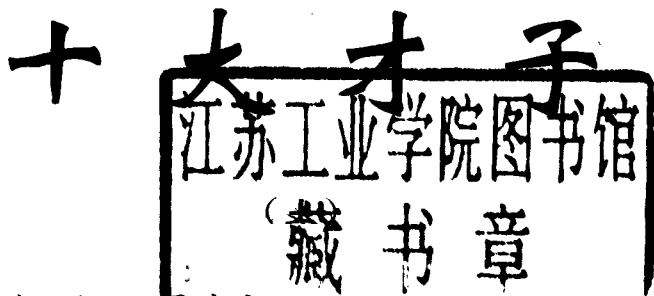 十大才子
江苏工业学院图书馆
藏书章